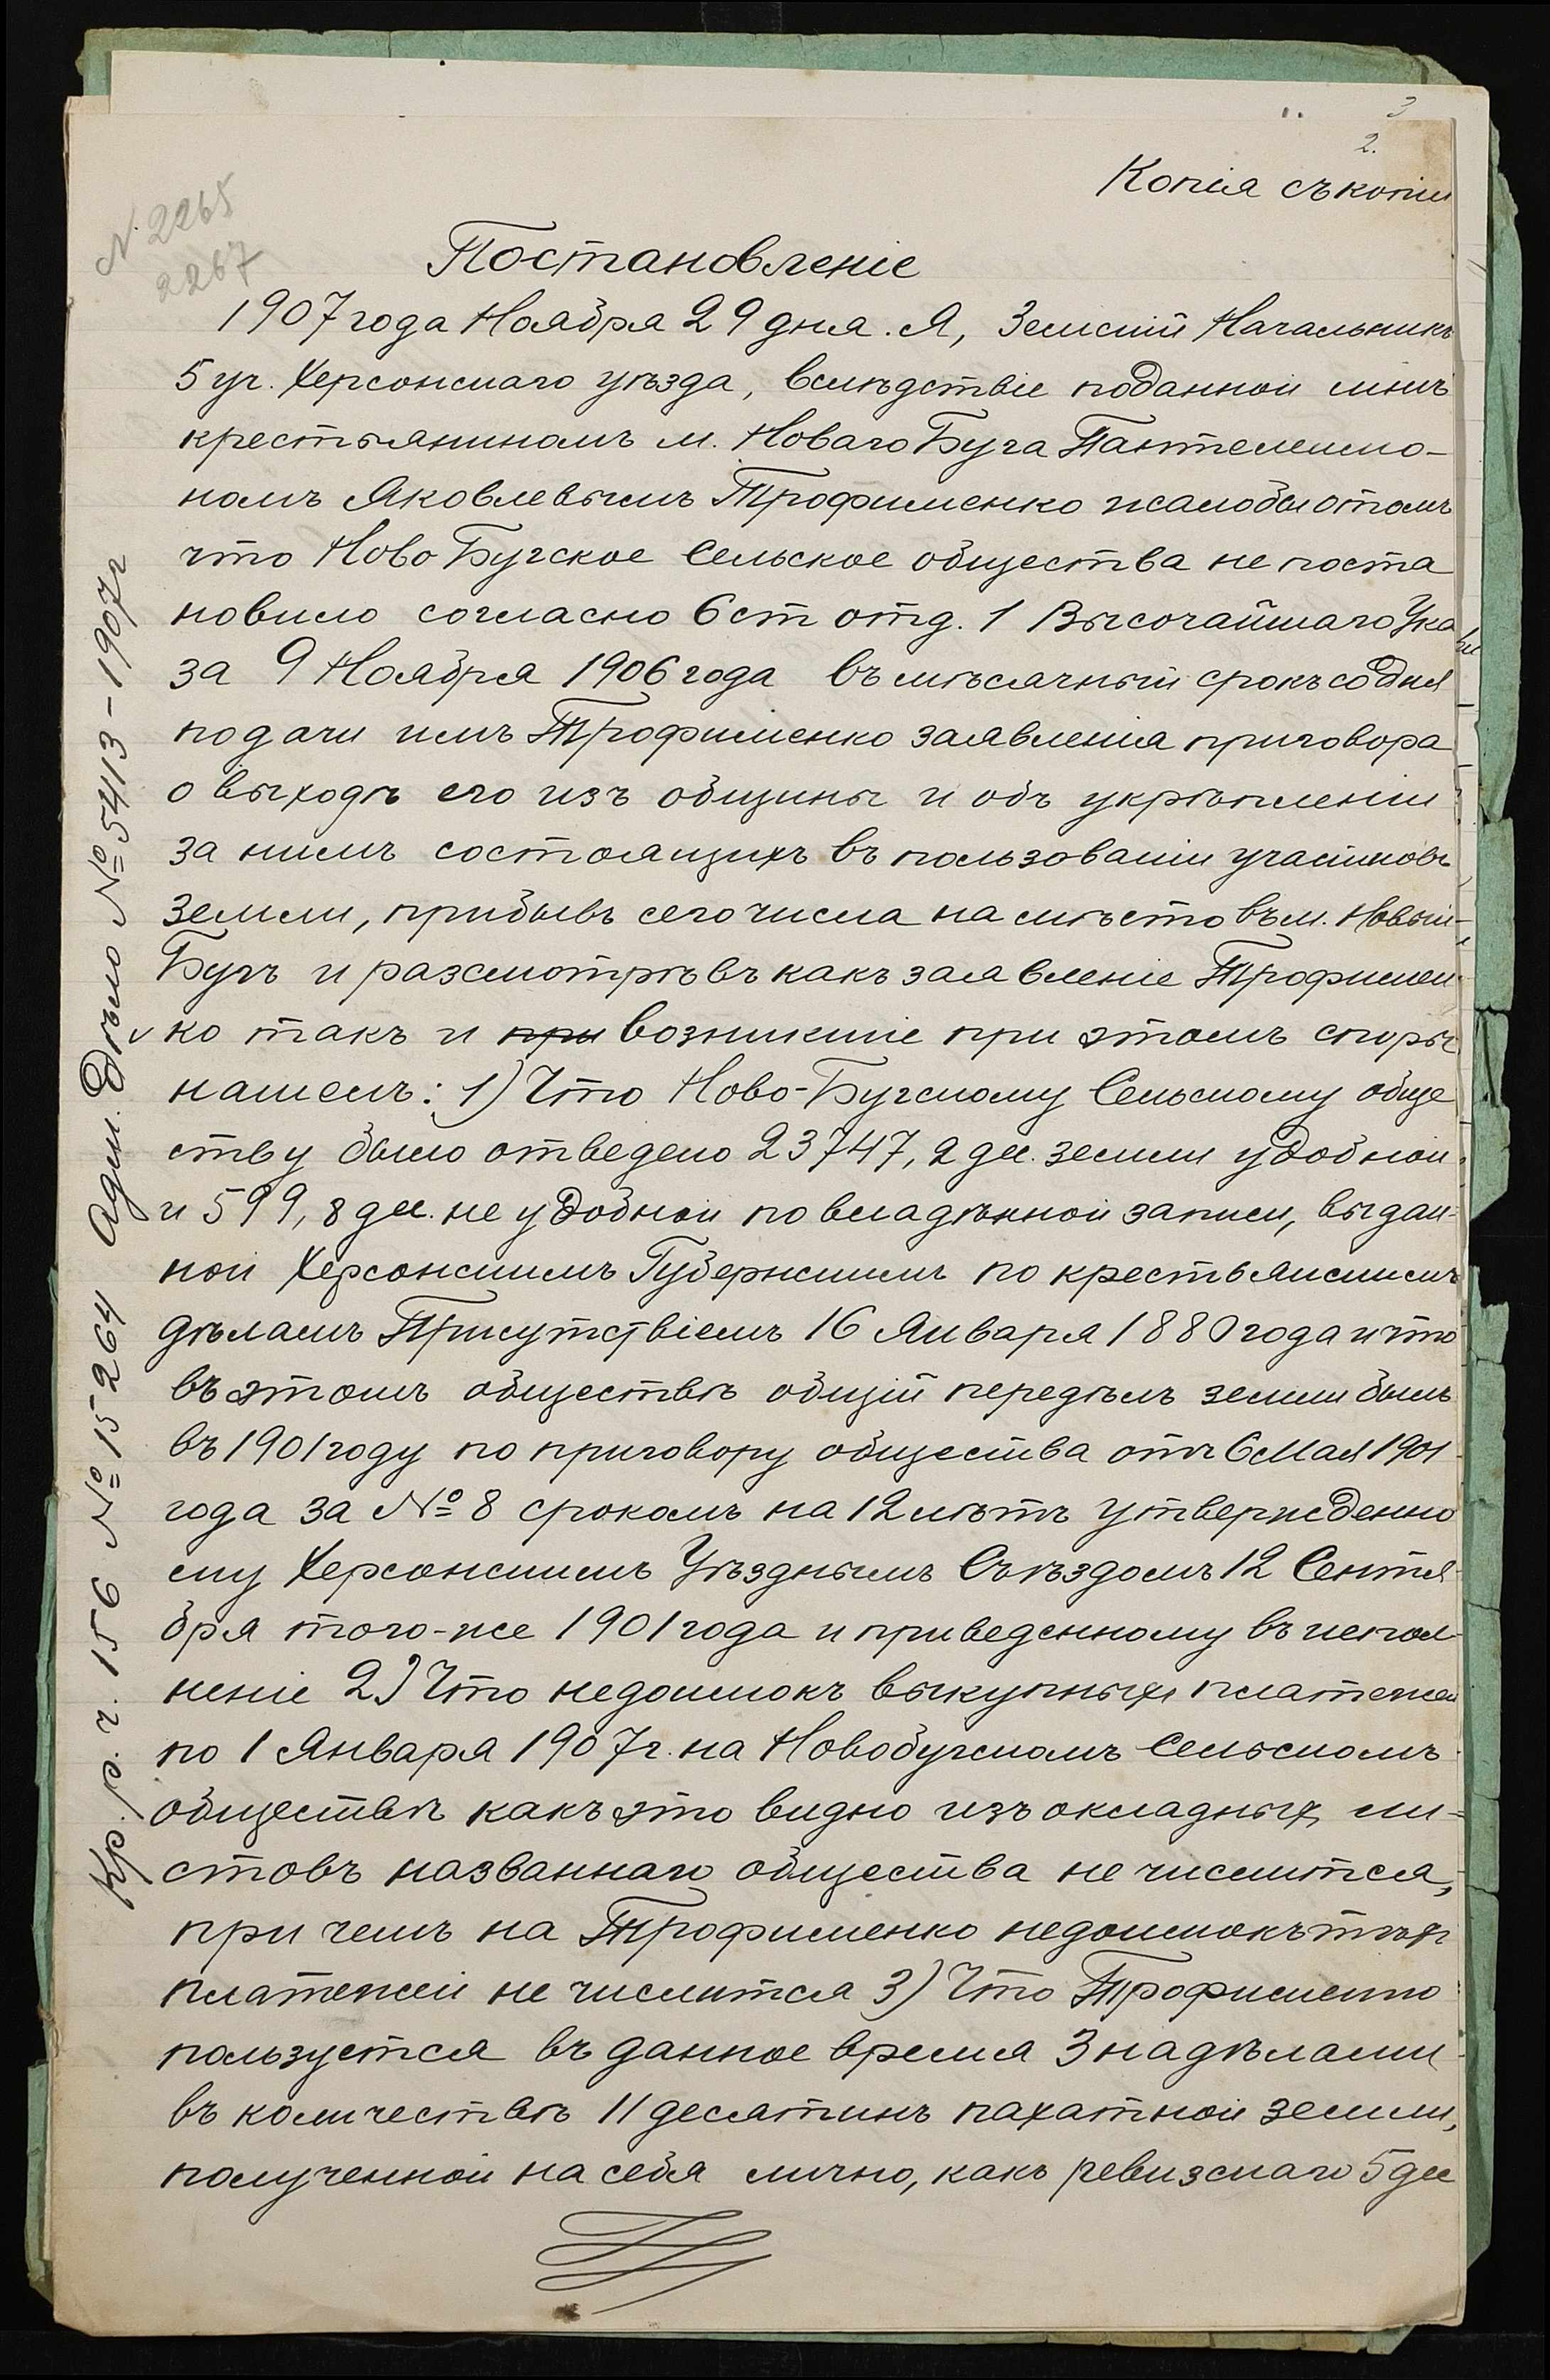 3
2.
Копія съ копіи
N. 2265
2267
Постановленіе
1907 года Ноября 29 дня. Я, Земскій Начальникъ
5 уч. Херсонскаго уѣзда, вслѣдствіе поданной мнѣ
крестьяниномъ м. Новаго Буга Пантелеимо-
номъ Яковлевымъ Трофименко жалобы о томъ
что Ново Бугское Сельское общества не поста
новило согласно 6 ст отд. 1 Высочайшаго Ука
за 9 Ноября 1906 года въ мѣсячный срокъ со дня
подачи имъ Трофименко заявленія приговора
о выходѣ его изъ общины и объ укрѣпленіи
за нимъ состоящихъ въ пользованіи участковъ
земли, прибывъ сего числа на мѣсто въ м. Новый-
Бугъ и разсмотрѣвъ какъ заявленіе Трофимен
ко такъ и при возникшіе при этомъ споры
нашелъ: 1) Что Ново-Бугскому Сельскому обще
ству было отведено 23747,2 дес. земли удобной
и 599,8 дес. не удобной по владѣнной записи, выдан-
ной Херсонскимъ Губернскимъ по крестьянскимъ
дѣламъ Присутствіемъ 16 Января 1880 года и что
въ этомъ обществѣ общій передѣлъ земли былъ
въ 1901 году по приговору общества отъ 6 Мая 1901
года за № 8 срокомъ на 12 лѣтъ утвержденно
му Херсонскимъ Уѣзднымъ Съѣздомъ 12 Сентя-
бря того-же 1901 года и приведенному въ испол-
неніе 2) Что недоимокъ выкупныхъ платежей
по 1 Января 1907 г. на Новобугскомъ Сельскомъ
обществѣ какъ это видно изъ окладныхъ ли-
стовъ названнаго общества не числится,
при чемъ на Трофименко недоимокъ тѣхъ
платежей не числится 3) Что Трофименко
пользуется въ данное время 3 надѣлами
въ количествѣ 11 десятинъ пахатной земли,
полученной на себя лично, какъ ревизскаго 5 дес
Кр. р. г. 156 № 15264 Адм. Дѣло № 5413-1907 г